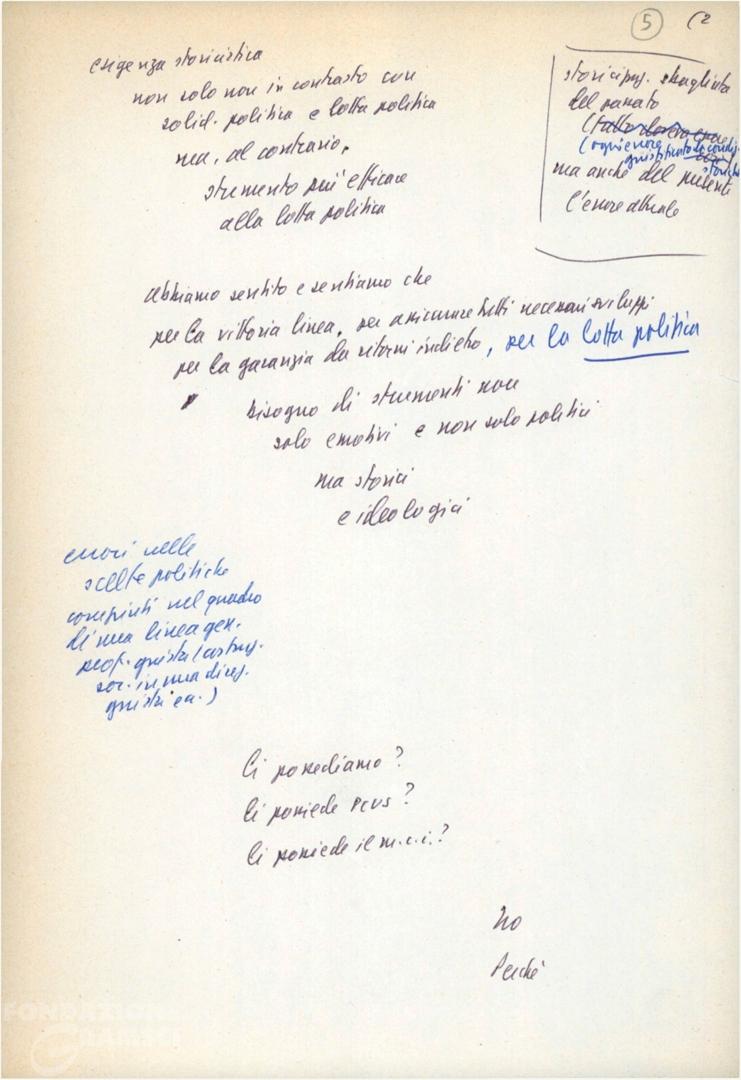 5 (2
esigenza storicistica
non solo non in contrasto con
solid. politica e lotta politica
ma, al contrario,
strumento più efficace
alla lotta politica
storicizaz. sbagliata
del passato
(tutto doveva
(ogni errore
giustificato condiz.
storiche
ma anche del presente
l'errore attuale
abbiamo sentito e sentiamo che
per la vittoria linea, per assicurare tutti necessari sviluppi
per la garanzia da ritorni indietro, per la lotta politica
bisogno di strumenti non
solo emotivi e non solo politici
ma storici
e ideologici
errori nelle
scelte politiche
compiuti nel quadro
di una linea gen.
giusta (costruz.
soc. in una direz.
giusta ecc.)
Li possediamo?
Li possiede PCUS?
Li possiede il m.c.i.?
No
Perché
FONDAZIONE
GRAMSCI